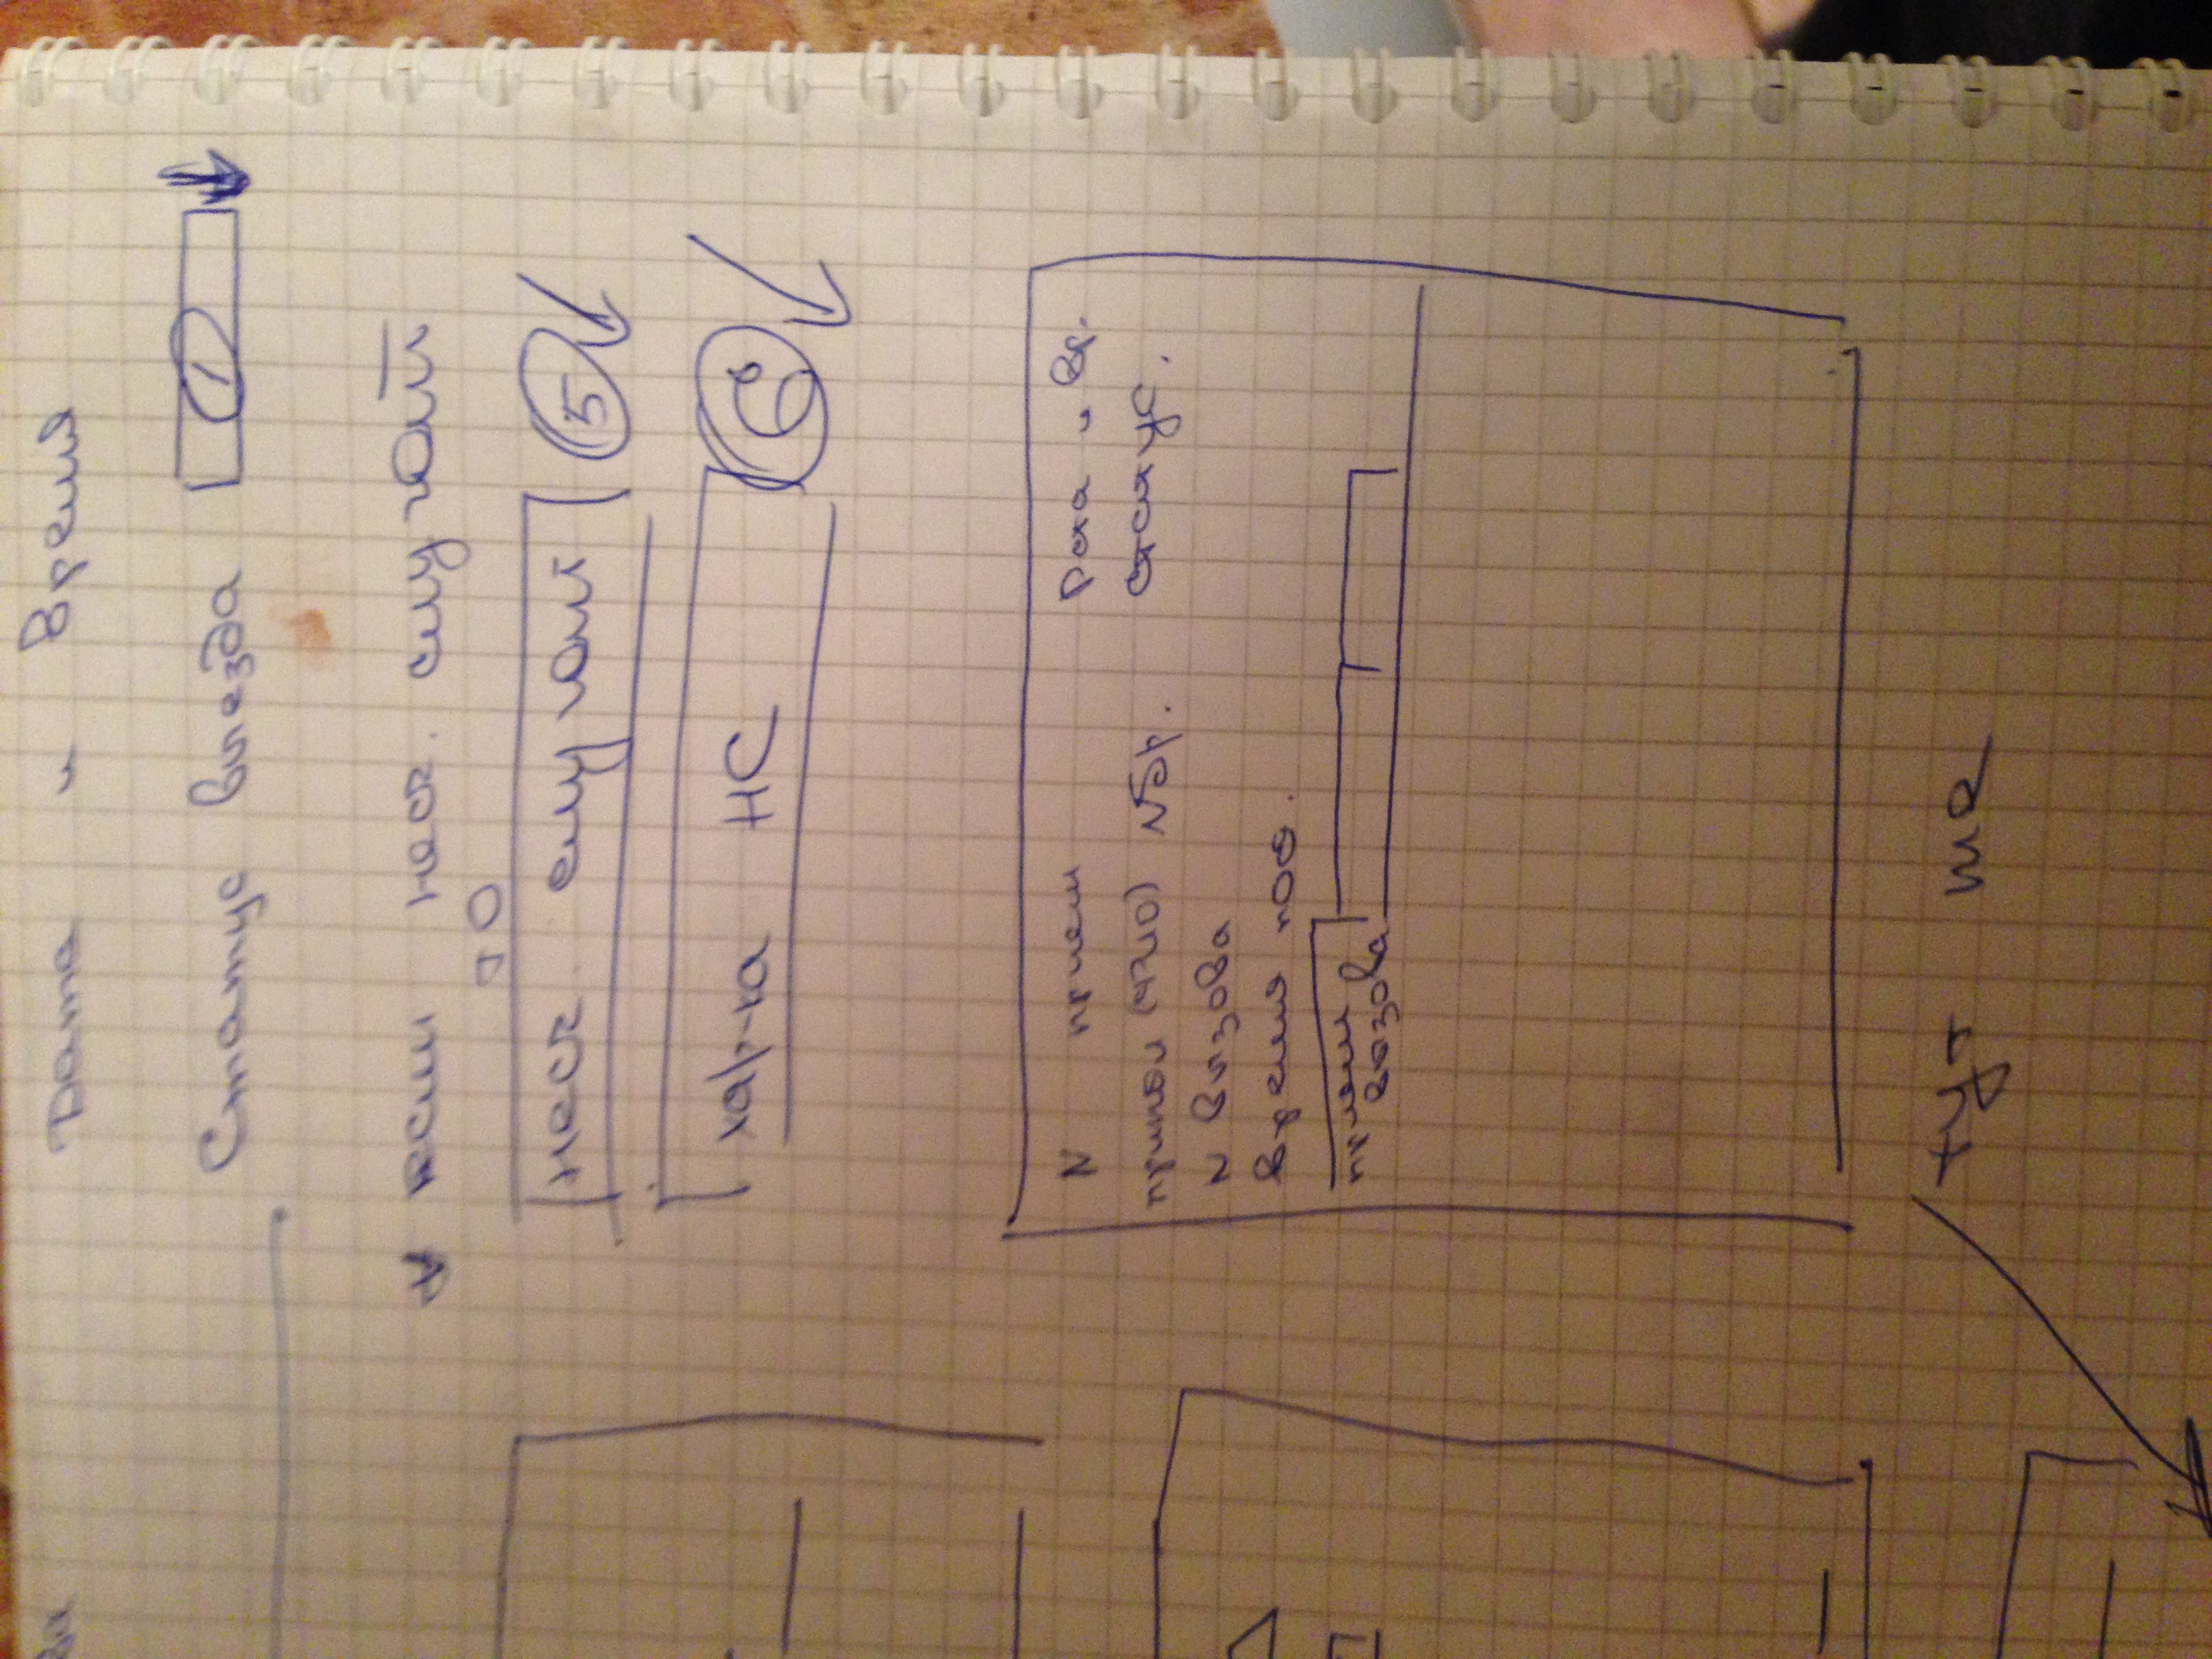 ва
Дата и Время
Статус выезда 1
* если несч. случай
то
несч. случай 5
хар-ка НС 6
N прием Дата и вр.
принял (ФИО) N бр. статус.
N вызова
Время пос.
прием
вызова
тут же